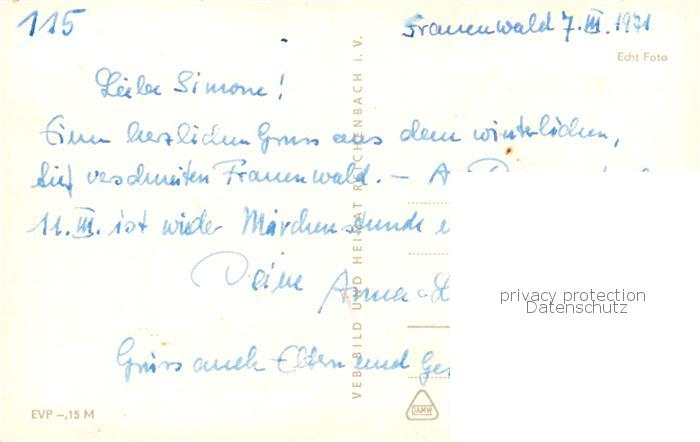 115
Frauenwald 7. III. 1971
Echt Foto
Liebe Simone!
Einen herzlichen Gruss aus dem winterlichen,
tief verschneiten Frauenwald. —
11. III. ist wieder Märchenstunde
Deine Anna-L
Gruss auch Eltern und Ges
VEB BILD UND HEIMAT REICHENBACH I. V.
privacy protection
Datenschutz
EVP –,15 M
DAMW